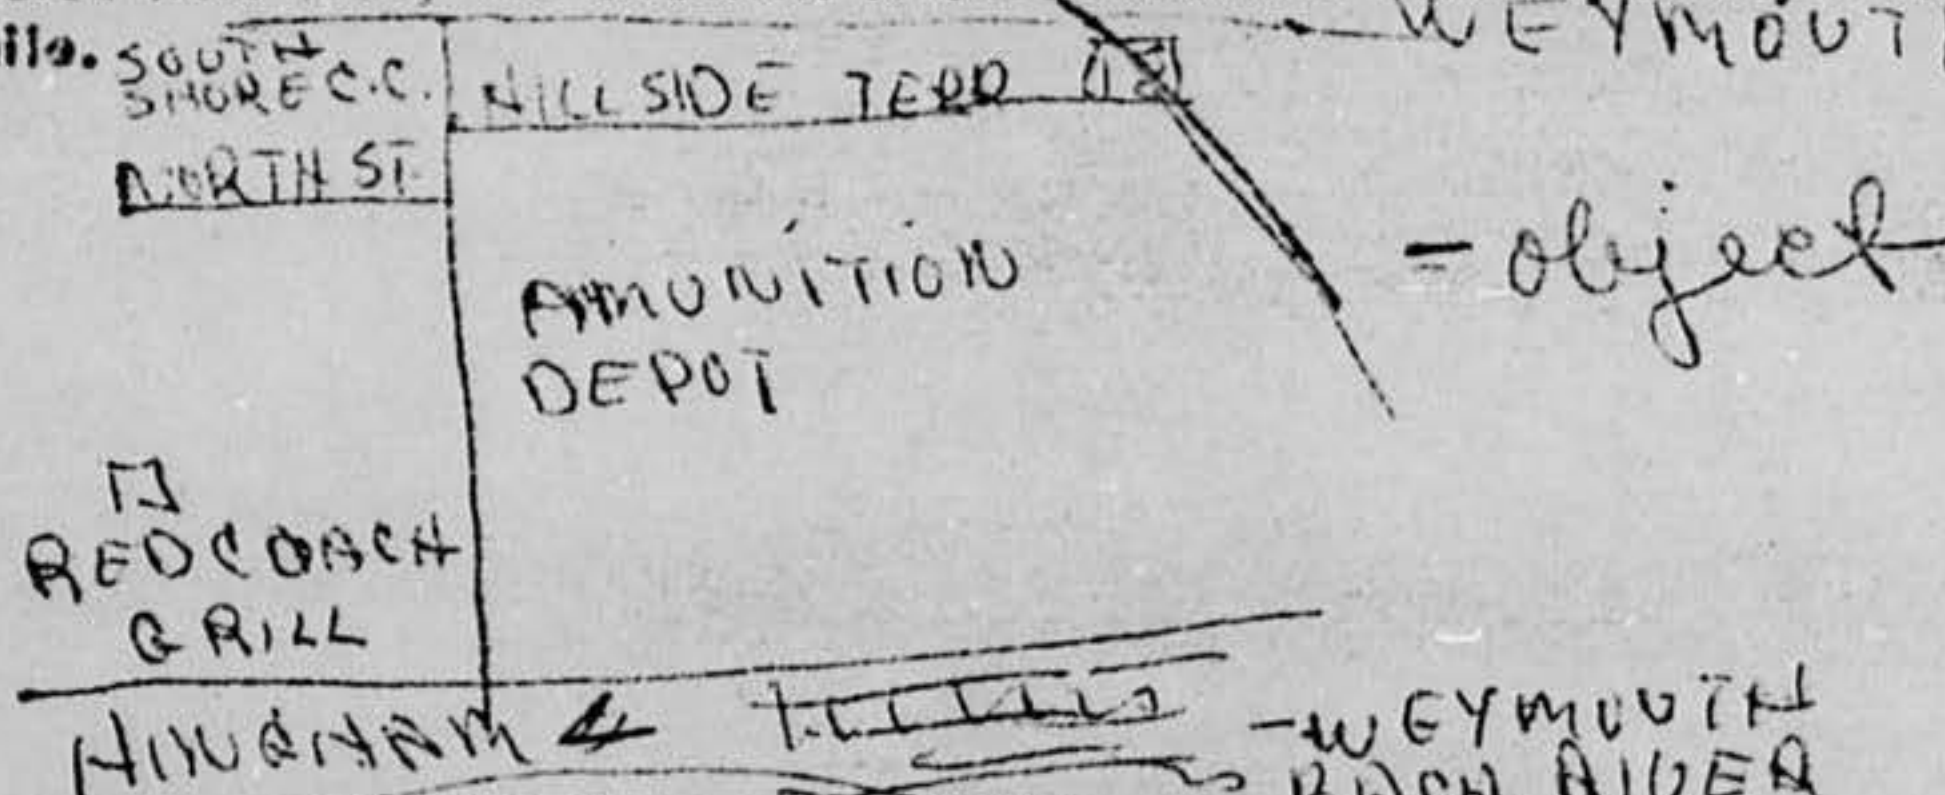 WEYMOUT
SOUTH
SHORE C.C.
HILLSIDE TERR
NORTH ST.
- object
AMUNITION
DEPOT
RED COACH
GRILL
HINGHAM
- WEYMOUTH
BACK RIVER